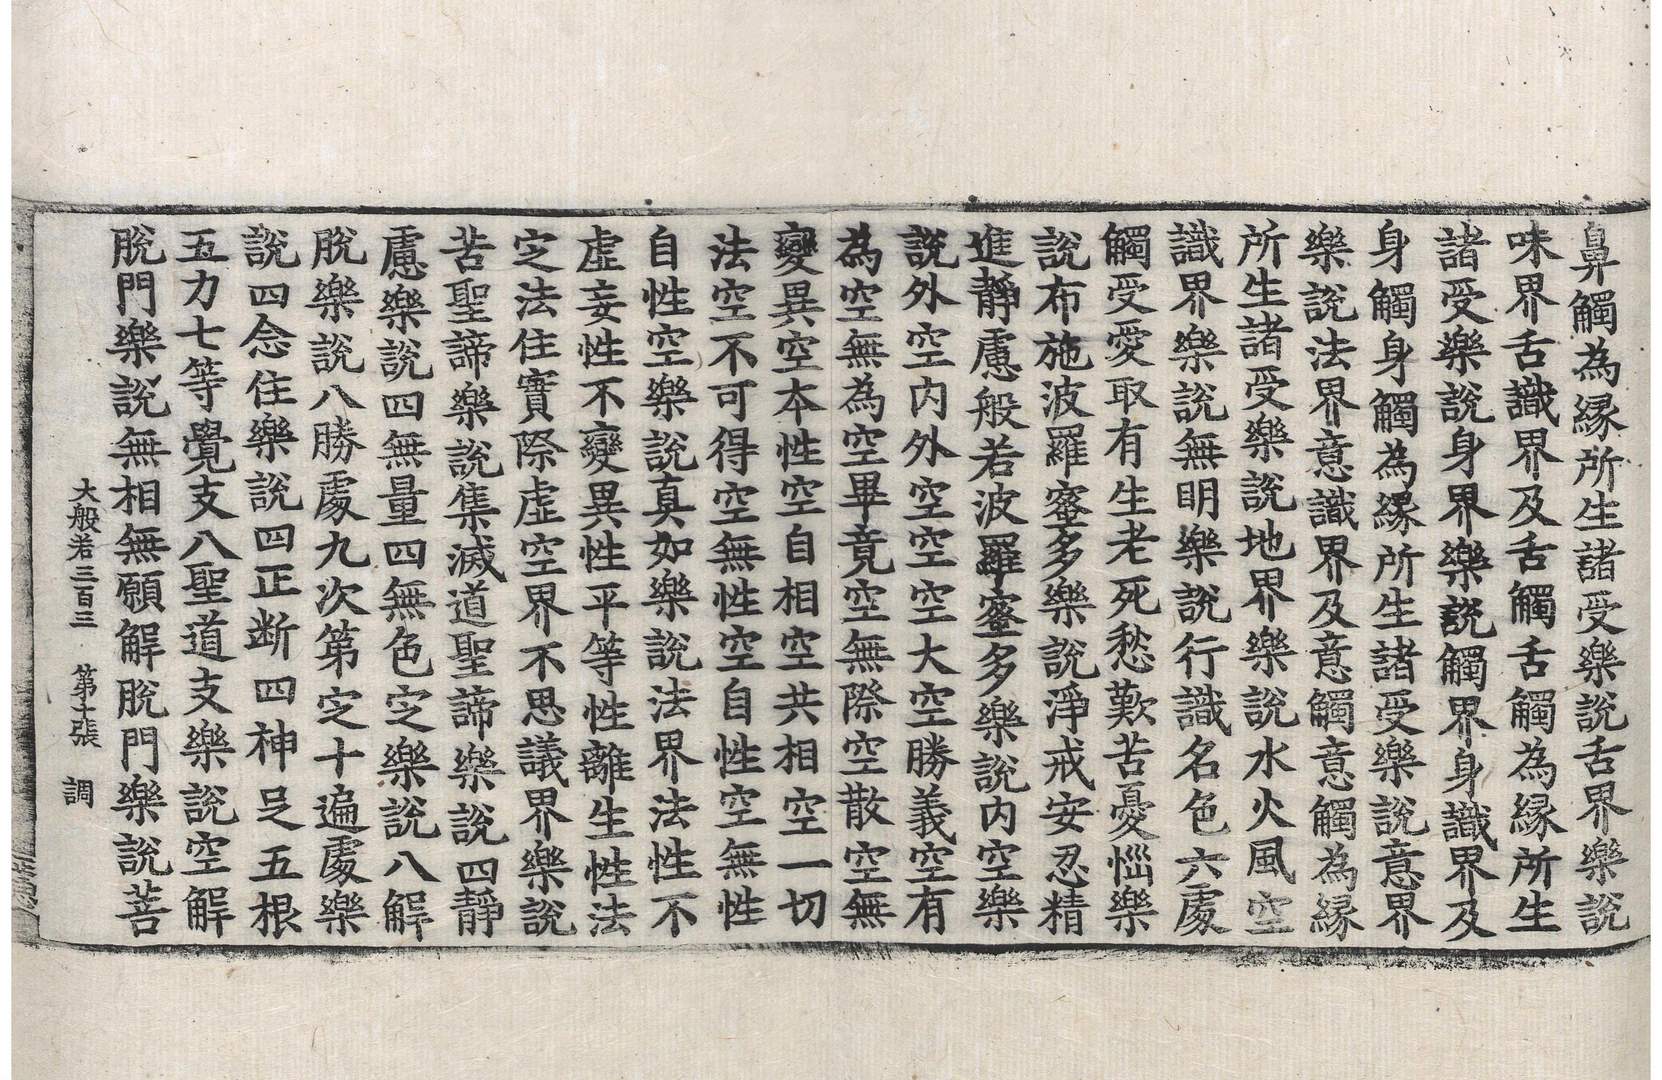 鼻觸為緣所生諸受樂說舌界樂說
味界舌識界及舌觸舌觸為緣所生
諸受樂說身界樂說觸界身識界及
身觸身觸為緣所生諸受樂說意界
樂說法界意識界及意觸意觸為緣
所生諸受樂說地界樂說水火風空
識界樂說無明樂說行識名色六處
觸受愛取有生老死愁歎苦憂惱樂
說布施波羅蜜多樂說淨戒安忍精
進靜慮般若波羅蜜多樂說內空樂
說外空內外空空空大空勝義空有
為空無為空畢竟空無際空散空無
變異空本性空自相空共相空一切
法空不可得空無性空自性空無性
自性空樂說真如樂說法界法性不
虛妄性不變異性平等性離生性法
定法住實際虛空界不思議界樂說
苦聖諦樂說集滅道聖諦樂說四靜
慮樂說四無量四無色定樂說八解
脫樂說八勝處九次第定十遍處樂
說四念住樂說四正斷四神足五根
五力七等覺支八聖道支樂說空解
脫門樂說無相無願解脫門樂說菩
大般若三百三 第十張 調